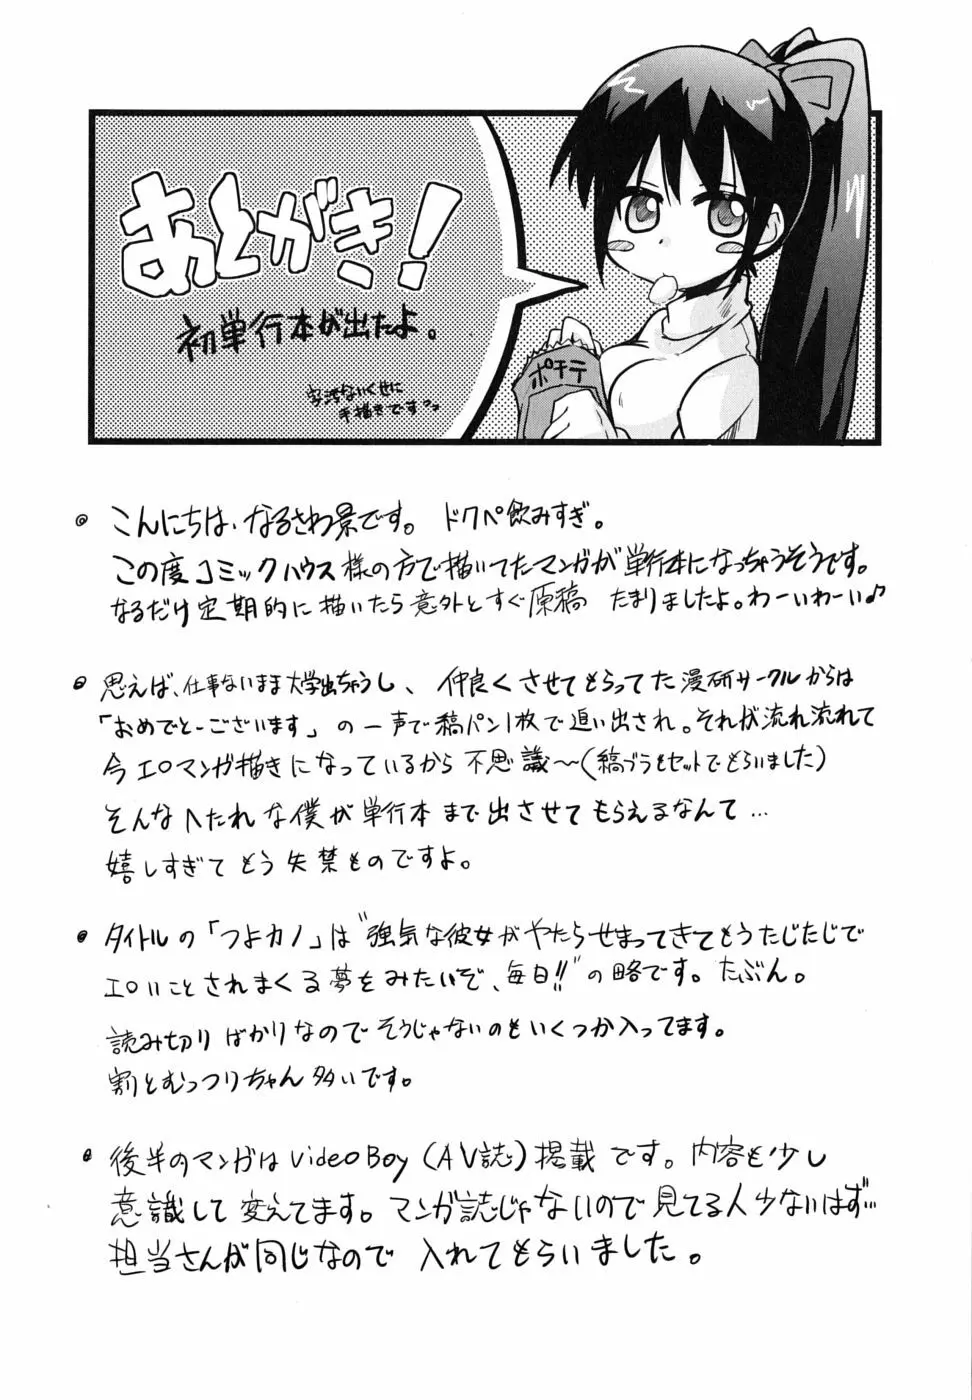 あとがき!
初単行本が出たよ。
字汚ないくせに
手描きですｳｯ
ポテチ
こんにちは、なるさわ景です。 ドクペ飲みすぎ。
この度コミックハウス様の方で描いてたマンガが単行本になっちゃうそうです。
なるだけ定期的に描いたら意外とすぐ原稿 たまりましたよ。わーいわーい♪
思えば、仕事ないまま大学出ちゃうし、仲良くさせてもらってた漫研サークルからは
「おめでとーございます」の一声で縞パン1枚で追い出され。それが流れ流れて
今エロマンガ描きになっているから不思議～(縞ブラもセットでもらいました)
そんなヘたれな僕が単行本まで出させてもらえるなんて…
嬉しすぎてもう失禁ものですよ。
タイトルの「つよカノ」は"強気な彼女がやたらせまってきてもうたじたじで
エロいことされまくる夢をみたいぞ、毎日!!"の略です。たぶん。
読み切りばかりなのでそうじゃないのもいくつか入ってます。
割とむっつりちゃん多いです。
後半のマンガはVideoBoy(AV誌)掲載です。内容も少し
意識して変えてます。マンガ誌じゃないので見てる人少ないはず…
担当さんが同じなので入れてもらいました。